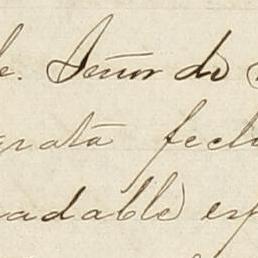 le. Señor de
grata fech
radable esp